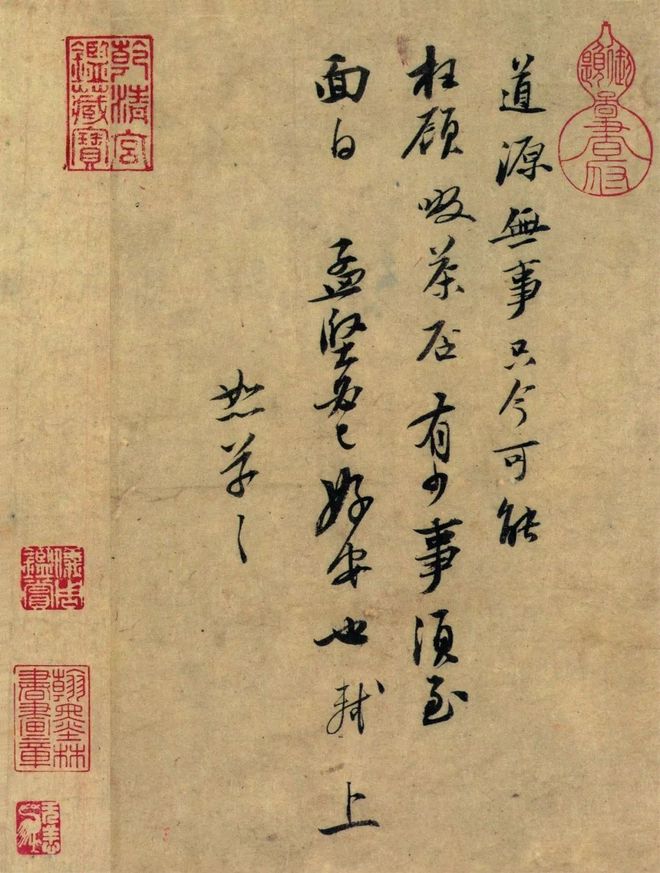 道源無事只今可能
枉顧啜茶否有少事須至
面白 孟堅必已好安也 軾 上
恕草〻
乾清宮鑑藏寶
儀周鑑賞
翰墨林書畫章